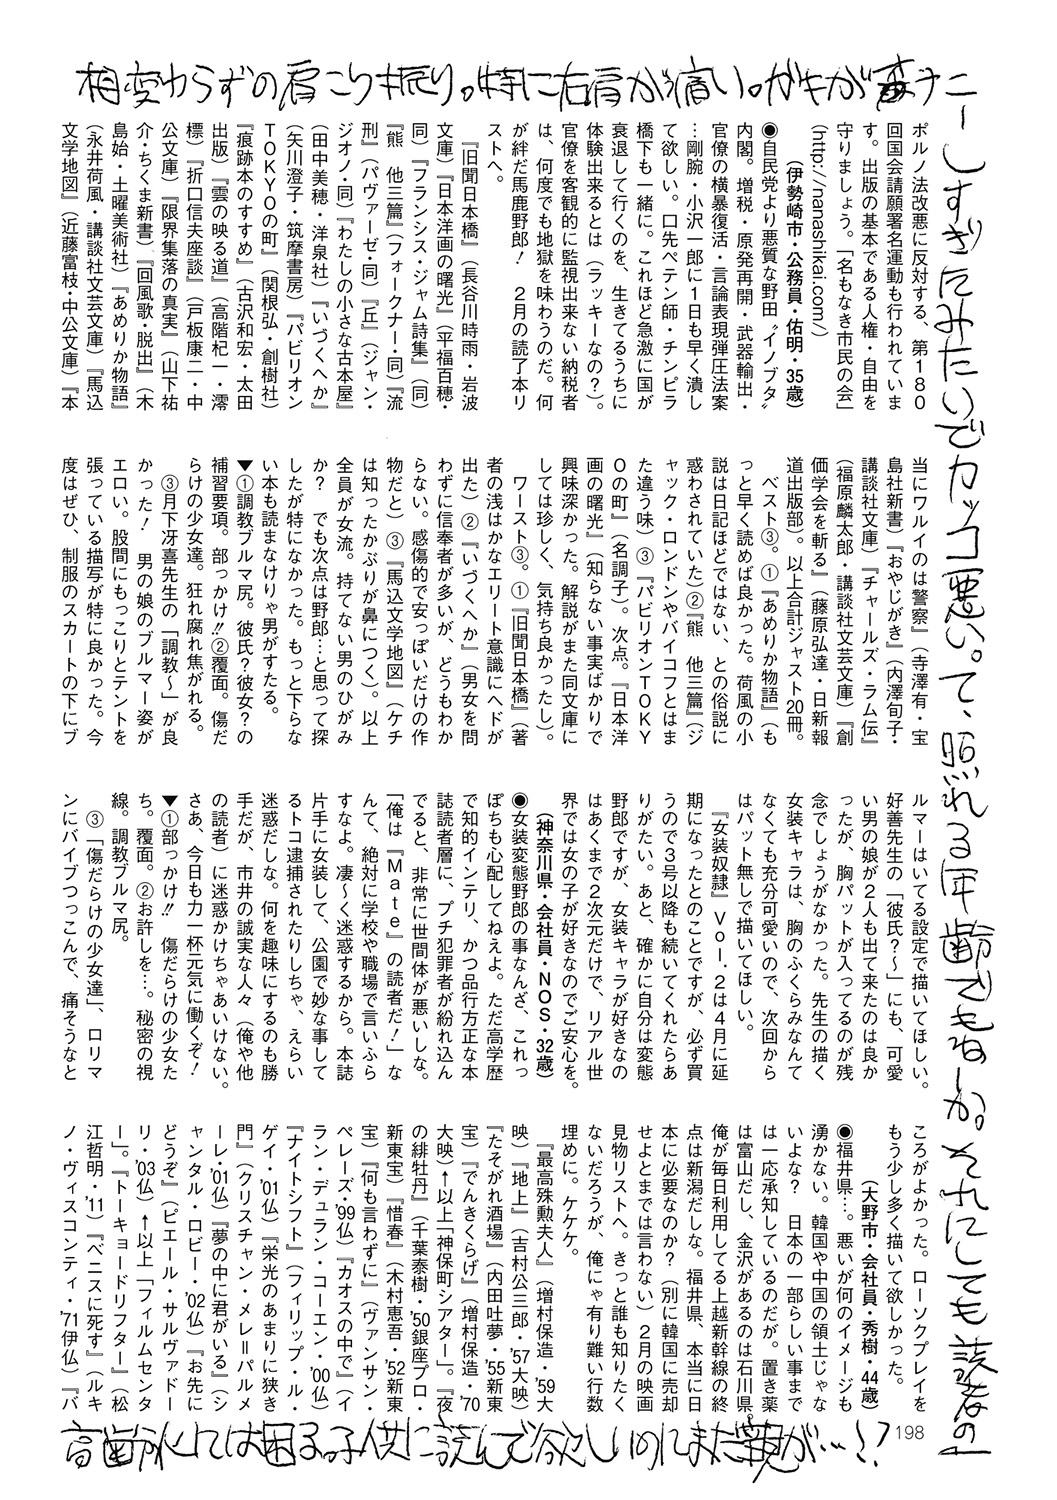 相変わらずの肩こり振り。特に右肩が痛い。ガキが毒ナニ
ーしすぎたみたいでカッコ悪い。て、照れる年齢でもねーか。それにしても読者の
高齢化しては困る。子供に読んで欲しいのにまた親が…!?
ポルノ法改悪に反対する、第180
回国会請願署名運動も行われていま
す。出版の基本である人権・自由を
守りましょう。「名もなき市民の会」
(http://nanashikai.com/)
(伊勢崎市・公務員・佑明・35歳)
◉自民党より悪質な野田〝イノブタ〟
内閣。増税・原発再開・武器輸出・
官僚の横暴復活・言論表現弾圧法案
…剛腕・小沢一郎に1日も早く潰し
て欲しい。口先ペテン師・チンピラ
橋下も一緒に。これほど急激に国が
衰退して行くのを、生きてるうちに
体験出来るとは（ラッキーなの？）。
官僚を客観的に監視出来ない納税者
は、何度でも地獄を味わうのだ。何
が絆だ馬鹿野郎！　2月の読了本リ
ストへ。
『旧聞日本橋』（長谷川時雨・岩波
文庫）『日本洋画の曙光』（平福百穂・
同）『フランシス・ジャム詩集』（同）
『熊　他三篇』（フォークナー・同）『流
刑』（パヴァーゼ・同）『丘』（ジャン・
ジオノ・同）『わたしの小さな古本屋』
（田中美穂・洋泉社）『いづくへか』
（矢川澄子・筑摩書房）『パビリオン
TOKYOの町』（関根弘・創樹社）
『痕跡本のすすめ』（古沢和宏・太田
出版）『雲の映る道』（高階杞一・澪
標）『折口信夫座談』（戸板康二・中
公文庫）『限界集落の真実』（山下祐
介・ちくま新書）『回風歌・脱出』（木
島始・土曜美術社）『あめりか物語』
（永井荷風・講談社文芸文庫）『馬込
文学地図』（近藤富枝・中公文庫）『本
当にワルイのは警察』（寺澤有・宝
島社新書）『おやじがき』（内澤旬子・
講談社文庫）『チャールズ・ラム伝』
（福原麟太郎・講談社文芸文庫）『創
価学会を斬る』（藤原弘達・日新報
道出版部）。以上合計ジャスト20冊。
ベスト③。①『あめりか物語』（も
っと早く読めば良かった。荷風の小
説は日記ほどではない、との俗説に
惑わされていた）②『熊　他三篇』（ジ
ャック・ロンドンやバイコフとはま
た違う味）③『パビリオンTOKY
Oの町』（名調子）。次点。『日本洋
画の曙光』（知らない事実ばかりで
興味深かった。解説がまた同文庫に
しては珍しく、気持ち良かったし）。
ワースト③。①『旧聞日本橋』（著
者の浅はかなエリート意識にヘドが
出た）②『いづくへか』（男女を問
わずに信奉者が多いが、どうもわか
らない。感傷的で安っぽいだけの作
物だと）③『馬込文学地図』（ケチ
は知ったかぶりが鼻につく）。以上
全員が女流。持てない男のひがみ
か？　でも次点は野郎…と思って探
したが特になかった。もっと下らな
い本も読まなけりゃ男がすたる。
『女装奴隷』Vol.2は4月に延
期になったとのことですが、必ず買
うので3号以降も続いてくれたらあ
りがたい。あと、確かに自分は変態
野郎ですが、女装キャラが好きなの
はあくまで2次元だけで、リアル世
界では女の子が好きなのでご安心を。
(神奈川県・会社員・NOS・32歳)
◉女装変態野郎の事なんざ、これっ
ぽちも心配してねえよ。ただ高学歴
で知的インテリ、かつ品行方正な本
誌読者層に、プチ犯罪者が紛れ込ん
でると、非常に世間体が悪いしな。
「俺は『Mate』の読者だ！」な
んて、絶対に学校や職場で言いふら
すなよ。凄～く迷惑するから。本誌
片手に女装して、公園で妙な事して
るトコ逮捕されたりしちゃ、えらい
迷惑だしな。何を趣味にするのも勝
手だが、市井の誠実な人々（俺や他
の読者）に迷惑かけちゃあいけない。
さあ、今日も力一杯元気に働くぞ！
(大野市・会社員・秀樹・44歳)
◉福井県…。悪いが何のイメージも
湧かない。韓国や中国の領土じゃな
いよな？　日本の一部らしい事まで
は一応承知しているのだが。置き薬
は富山だし、金沢があるのは石川県。
俺が毎日利用してる上越新幹線の終
点は新潟だしな。福井県、本当に日
本に必要なのか？（別に韓国に売却
せよとまでは言わない）2月の映画
見物リストへ。きっと誰も知りたく
ないだろうが、俺にゃ有り難い行数
埋めに。ケケケ。
『最高殊勲夫人』（増村保造・'59大
映）『地上』（吉村公三郎・'57大映）
『たそがれ酒場』（内田吐夢・'55新東
宝）『でんきくらげ』（増村保造・'70
大映）↑以上「神保町シアター」。『夜
の緋牡丹』（千葉泰樹・'50銀座プロ・
新東宝）『惜春』（木村恵吾・'52新東
宝）『何も言わずに』（ヴァンサン・
ペレーズ・'99仏）『カオスの中で』（イ
ラン・デュラン・コーエン・'00仏）
『ナイトシフト』（フィリップ・ル・
ゲイ・'01仏）『栄光のあまりに狭き
門』（クリスチャン・メレ＝パルメ
ーレ・'01仏）『夢の中に君がいる』（シ
ャンタル・ロビー・'02仏）『お先に
どうぞ』（ピエール・サルヴァドー
リ・'03仏）↑以上「フィルムセンタ
ー」。『トーキョードリフター』（松
江哲明・'11）『ベニスに死す』（ルキ
ノ・ヴィスコンティ・'71伊仏）『バ
198